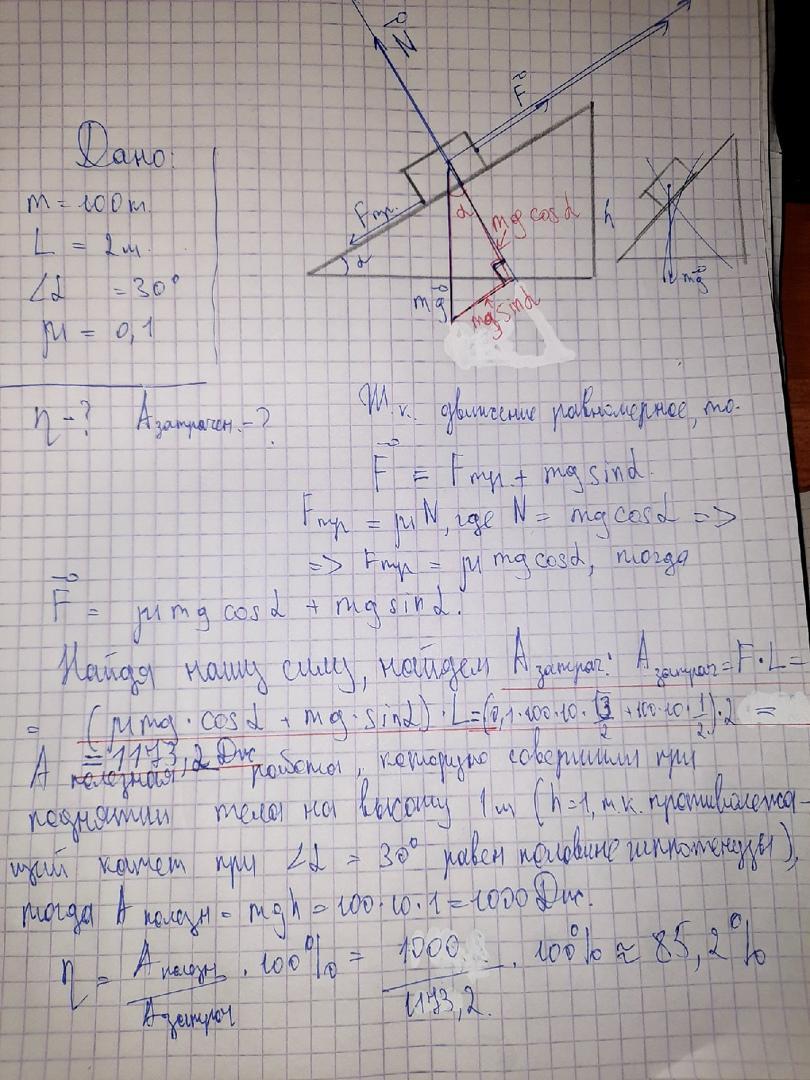 N
F
Дано:
m = 100 кг
Fтр.
α
mg cosα
h
L = 2 м
α
∠α = 30°
mg
mg sinα
mg
μ = 0,1
η - ? Aзатрачен. - ?
Т.к. движение равномерное, то.
F = Fтр + mg sinα.
Fтр = μN, где N = mg cosα =>
=> Fтр = μ mg cosα, тогда
F = μ mg cosα + mg sinα.
Найдя нашу силу, найдем Aзатрач: Aзатрач = F·L =
= (μmg·cosα + mg·sinα)·L = (0,1·100·10·√3/2 + 100·10·1/2)·2 =
= 1173,2 Дж
A полезная – работа, которую совершили при
поднятии тела на высоту 1м (h=1, т.к. противолежа-
щий катет при ∠α = 30° равен половине гиппотенузы),
тогда A полезн = mgh = 100·10·1 = 1000 Дж.
η = Aполезн/Aзатрач · 100% = 1000/1173,2. · 100% ≈ 85,2%